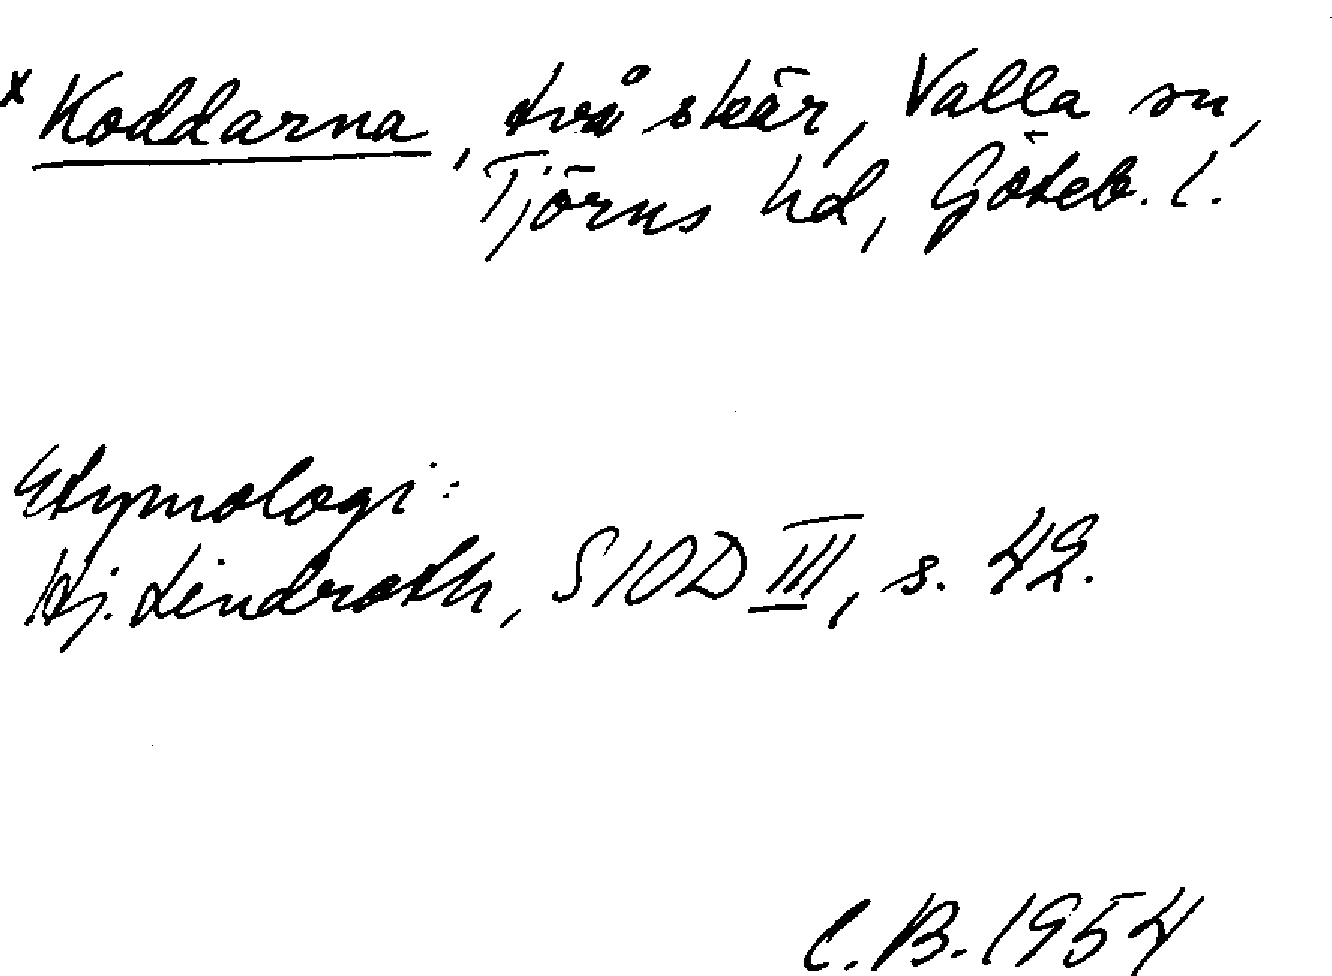 x Koddarna, två skär, Valla sn,
Tjörns hd, Göteb. l.
Etymologi:
Hj. Lindroth, SIOD III, s. 42.
C.B. 1954